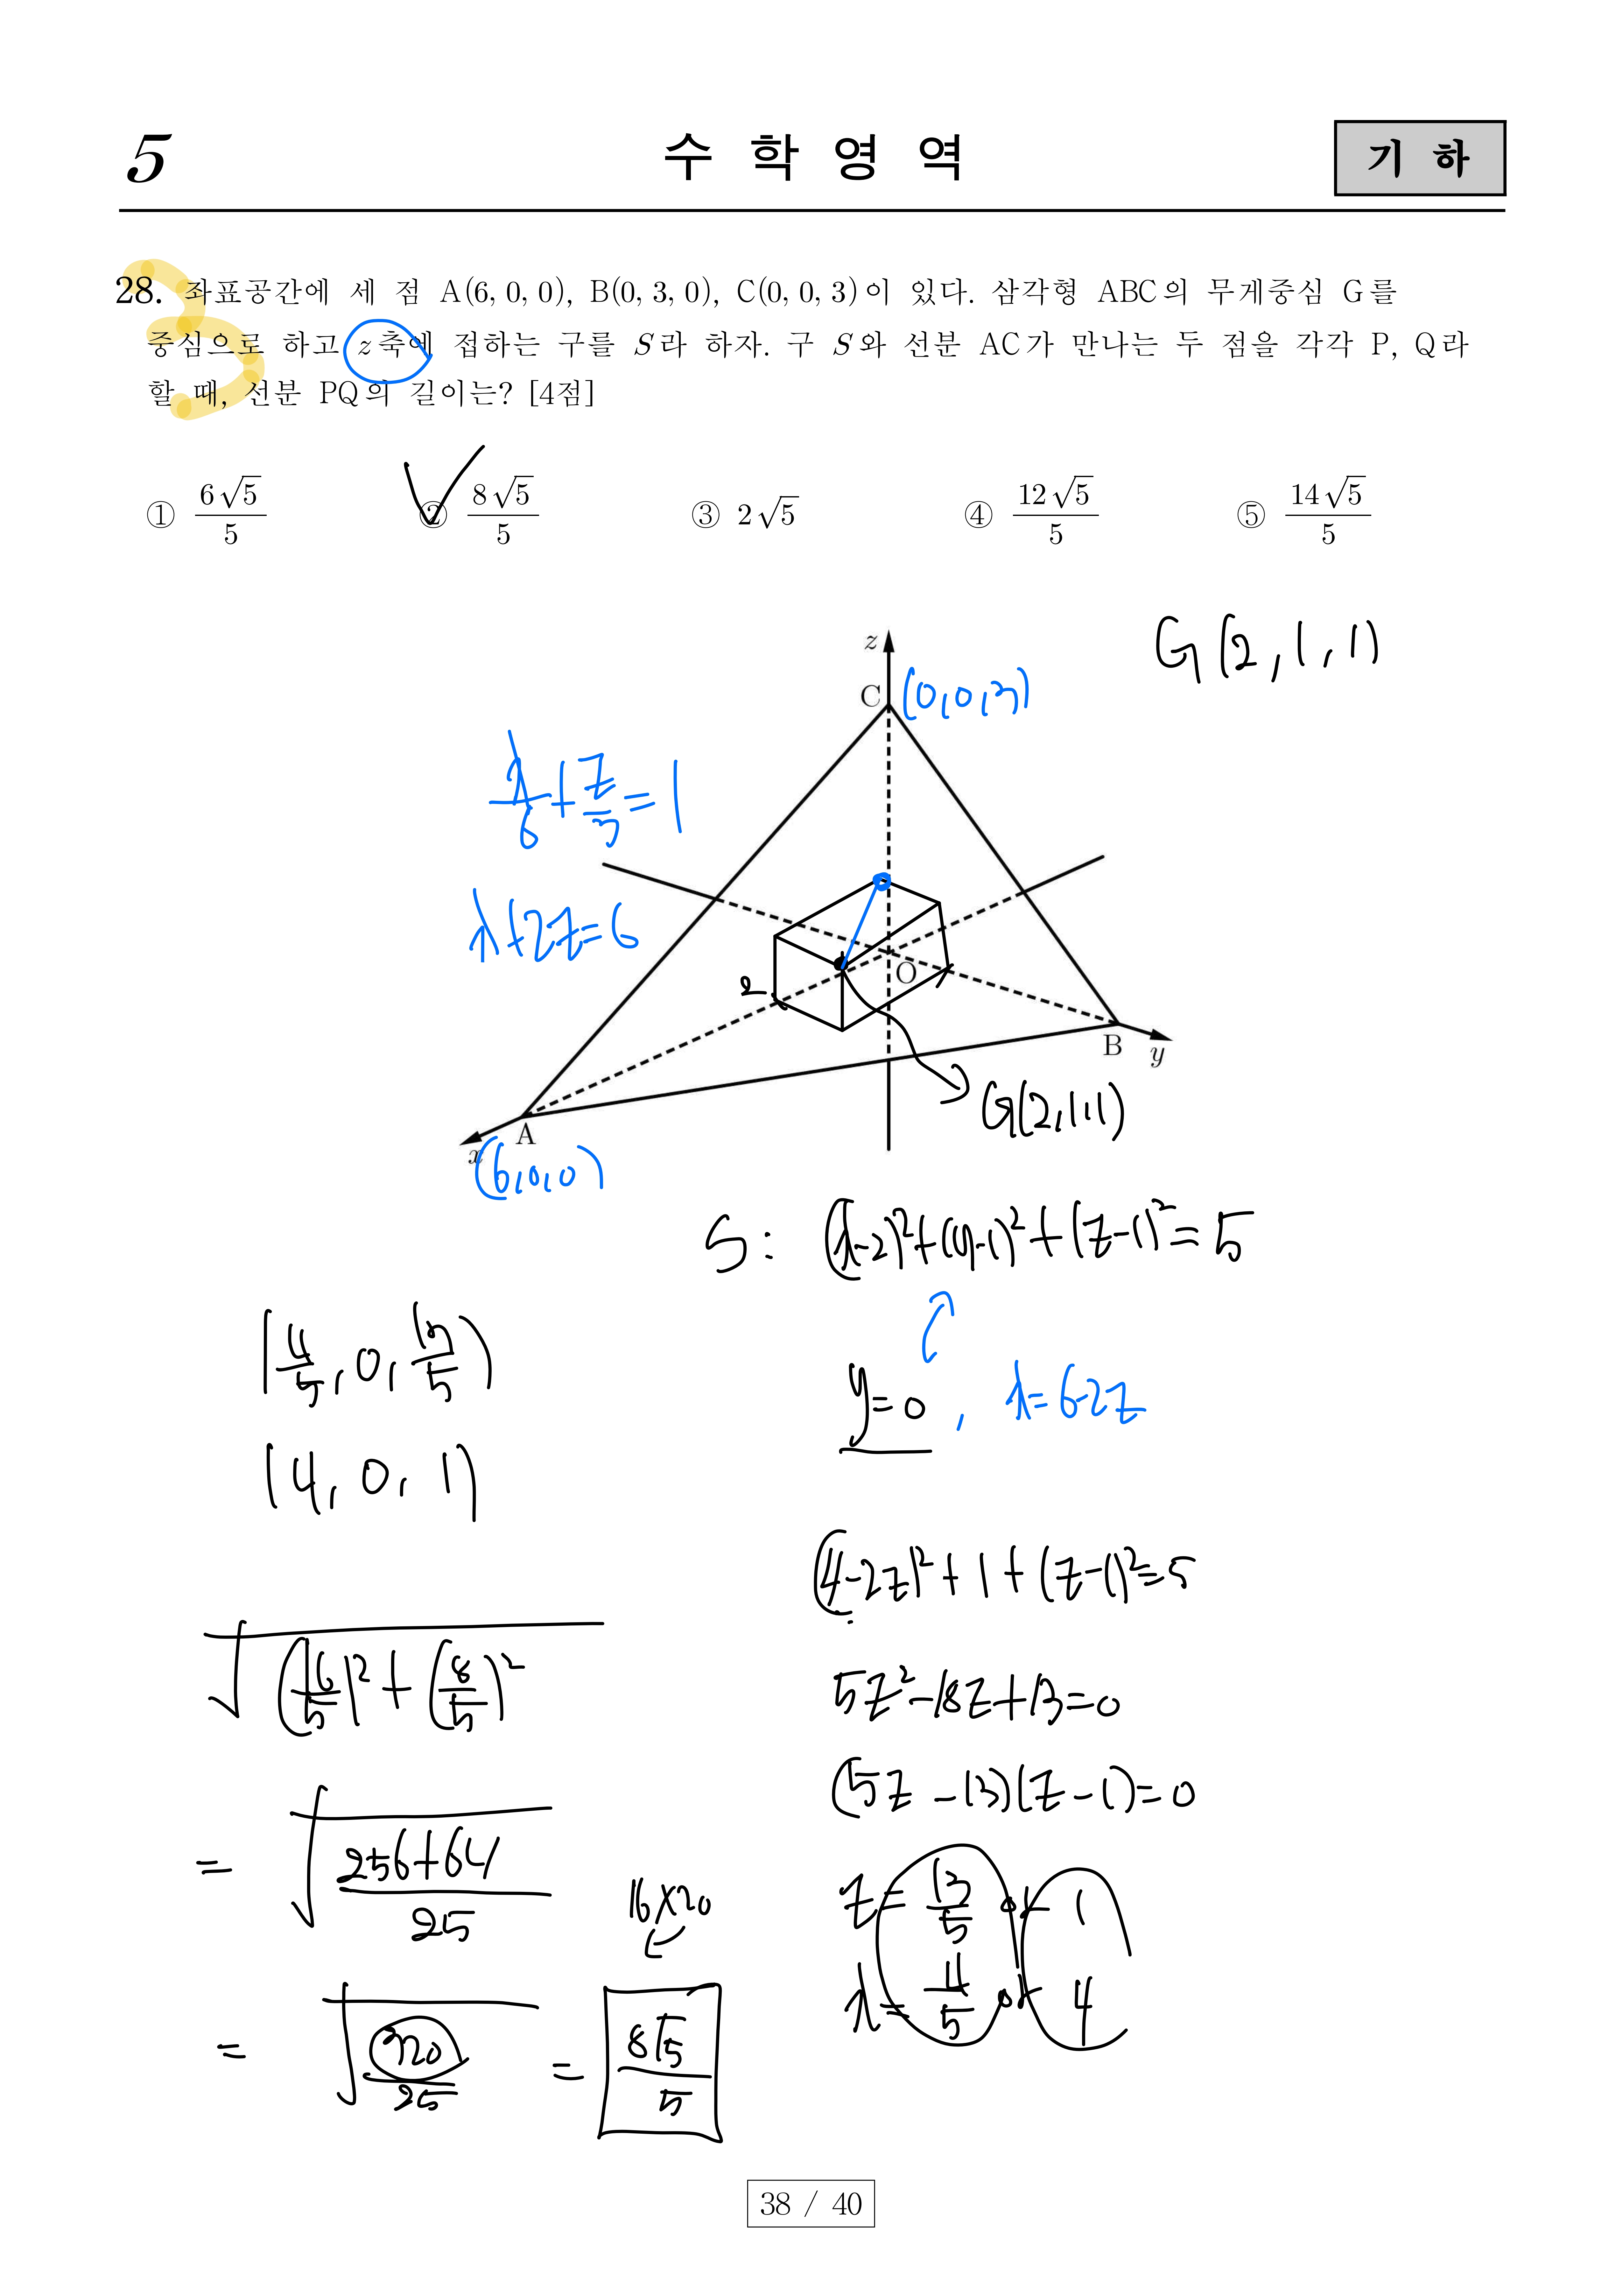 5
수 학 영 역
기 하
28. 좌표공간에 세 점 A(6, 0, 0), B(0, 3, 0), C(0, 0, 3)이 있다. 삼각형 ABC의 무게중심 G를
중심으로 하고 z축에 접하는 구를 S라 하자. 구 S와 선분 AC가 만나는 두 점을 각각 P, Q라
할 때, 선분 PQ의 길이는? [4점]
① 6√5/5 ② 8√5/5 ③ 2√5 ④ 12√5/5 ⑤ 14√5/5
G(2,1,1)
z
C (0,0,3)
x/6+z/3=1
x+2z=6
2
O
B
y
G(2,1,1)
A
x
(6,0,0)
S: (x-2)²+(y-1)²+(z-1)²=5
y=0, x=6-2z
(4/5, 0, 13/5)
(4, 0, 1)
(4-2z)²+1+(z-1)²=5
√((16/5)²+(8/5)²)
5z²-18z+13=0
(5z-13)(z-1)=0
= √((256+64)/25)
16×20
z= 13/5 or 1
x= 4/5 or 4
= √(320/25) = 8√5/5
38 / 40